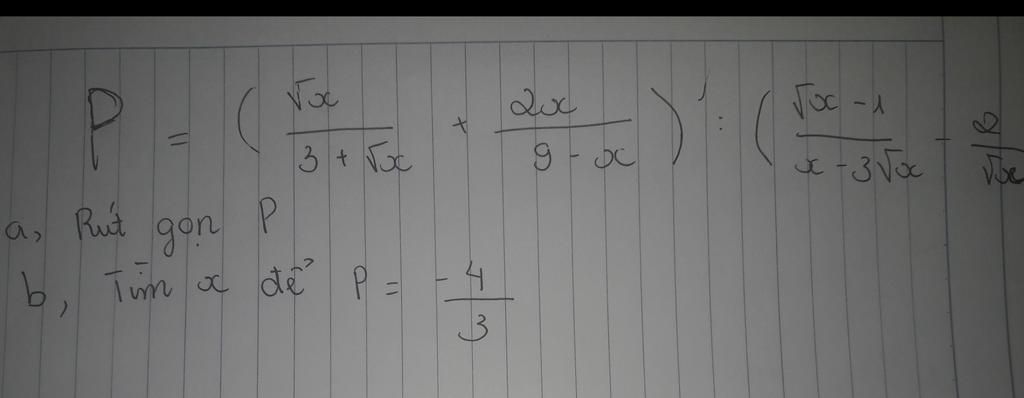 P = ( √x / (3 + √x) + 2x / (9 - x) ) : ( (√x - 1) / (x - 3√x) - 2 / √x
a, Rút gọn P
b, Tìm x để P = - 4 / 3